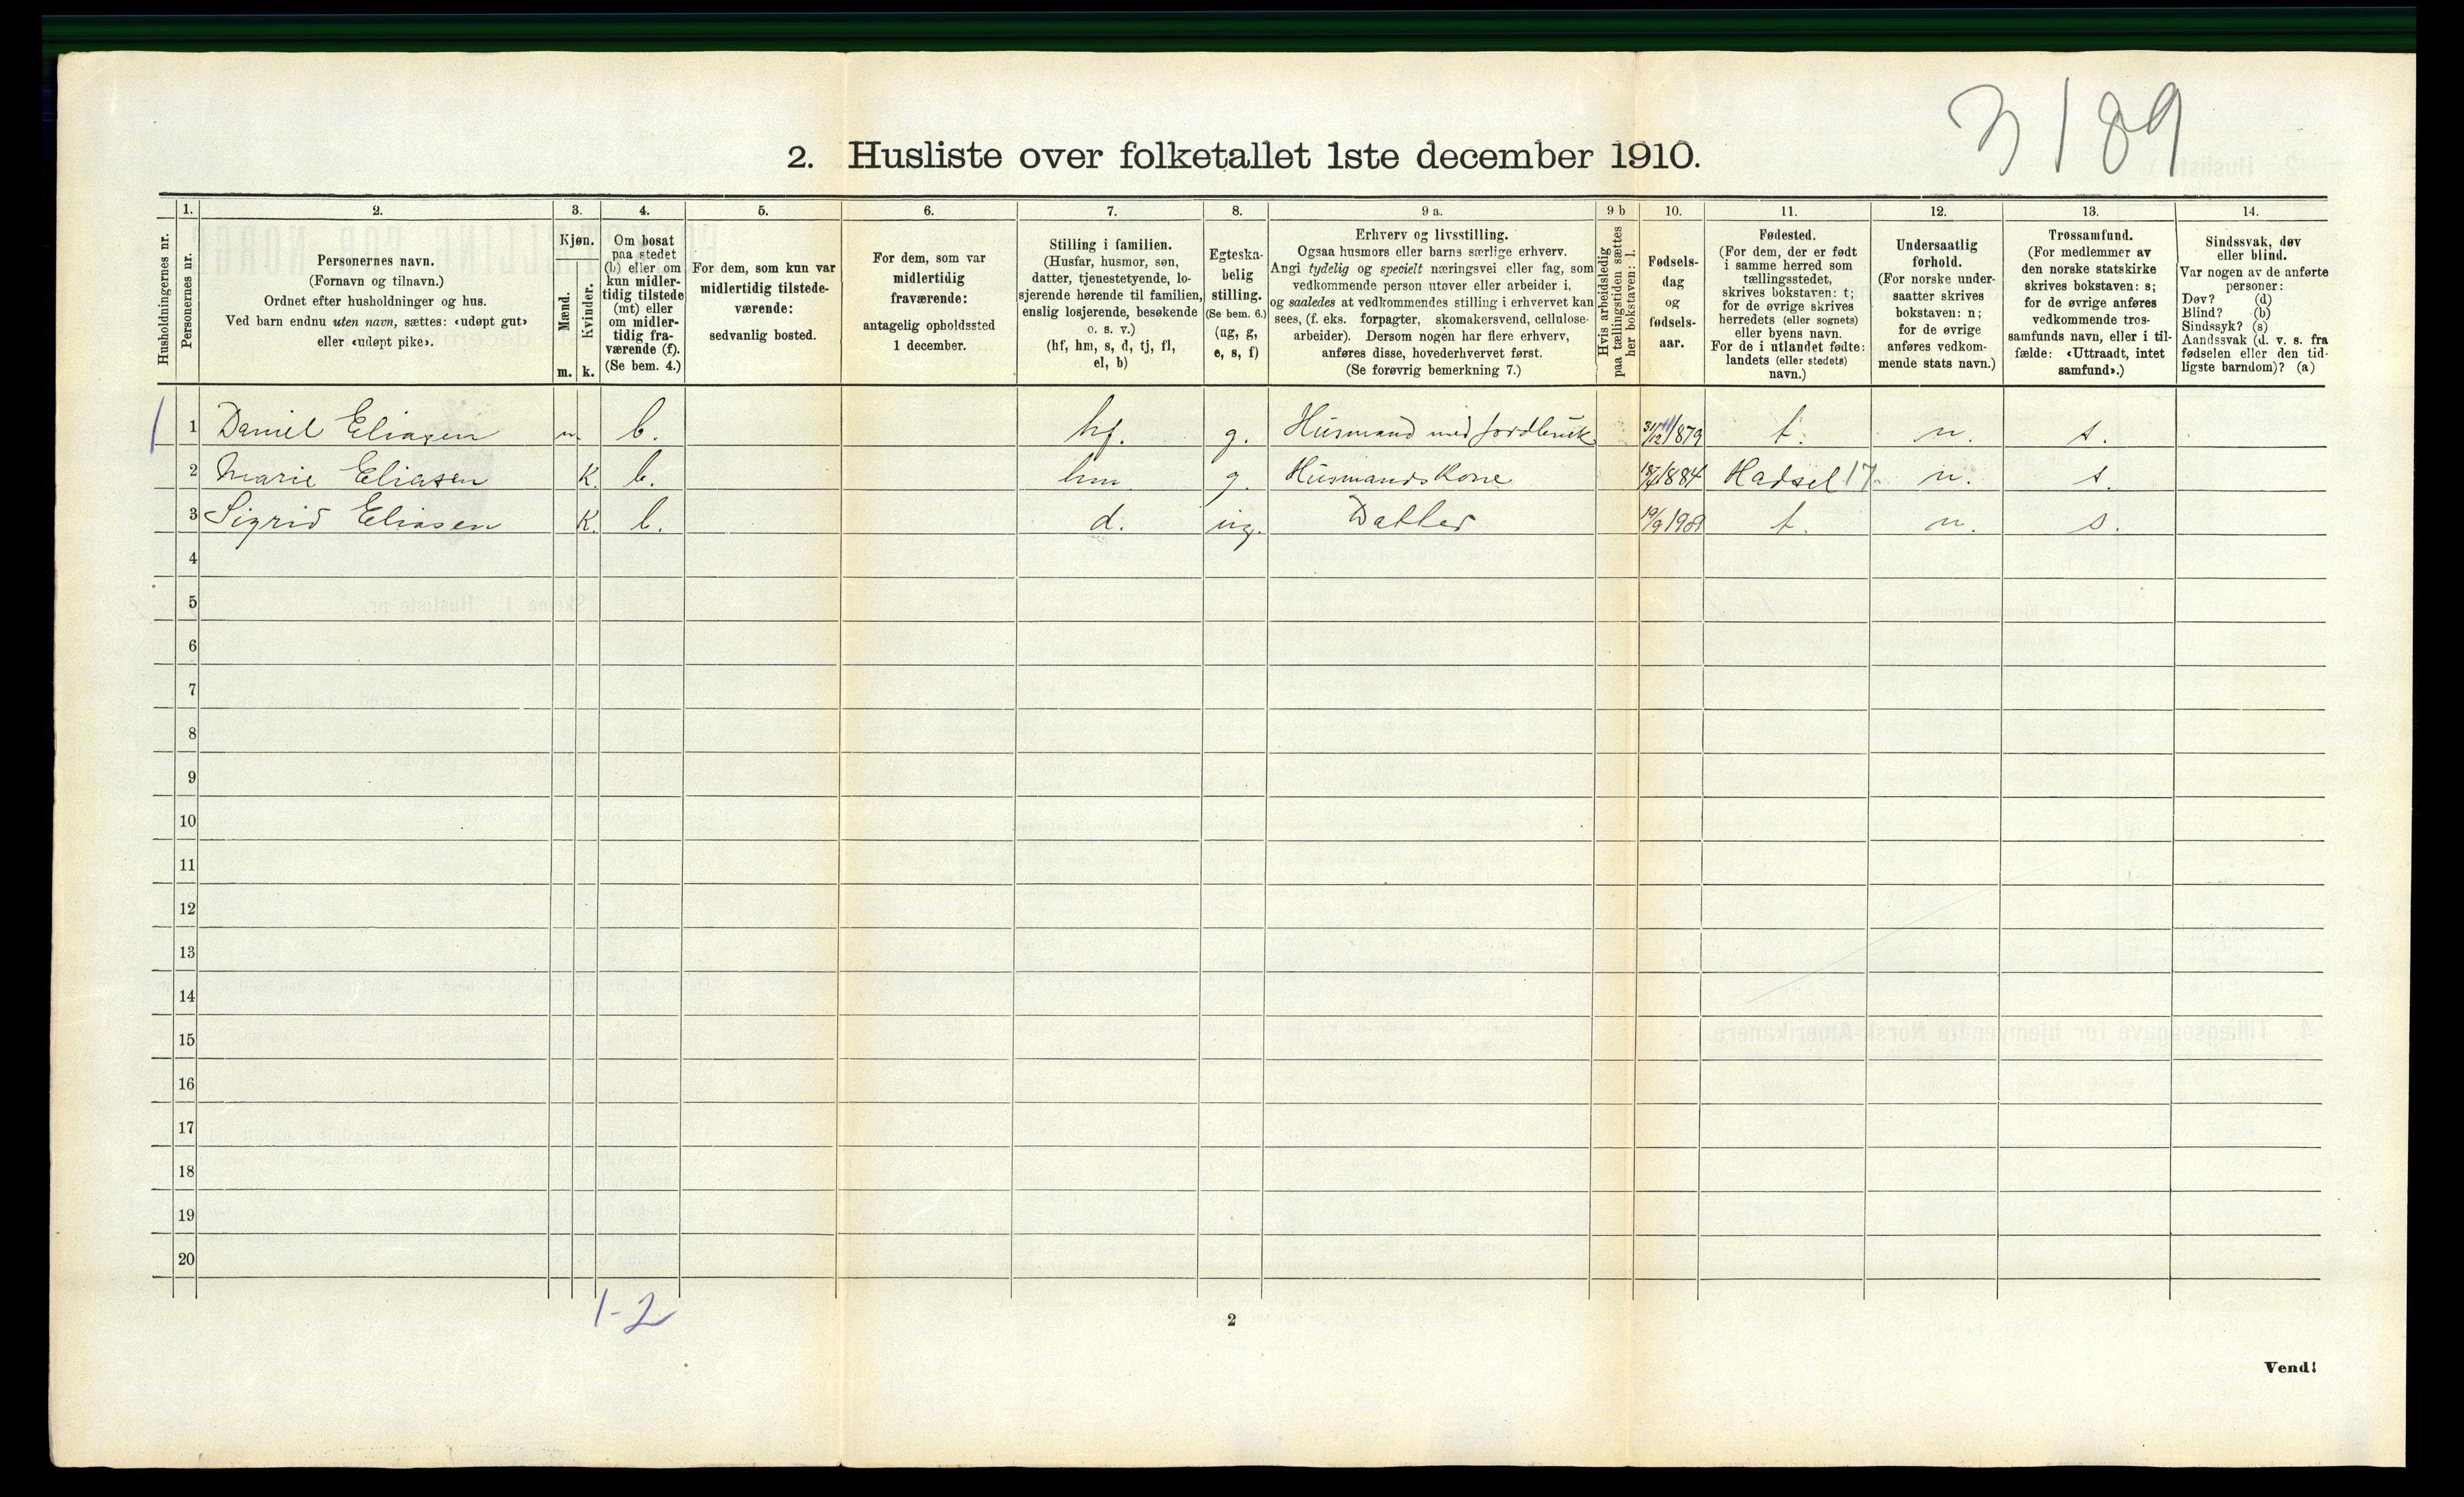 3189
2. Husliste over folketallet 1ste december 1910.
Husholdningernes nr.
1.
Personernes nr.
2.
Personernes navn.
(Fornavn og tilnavn.)
Ordnet efter husholdninger og hus.
Ved barn endnu uten navn, sættes: «udøpt gut»
eller «udøpt pike».
3.
Kjøn.
Mænd.
m.
Kvinder.
k.
4.
Om bosat
paa stedet
(b) eller om
kun midler-
tidig tilstede
(mt) eller
om midler-
tidig fra-
værende (f).
(Se bem. 4.)
5.
For dem, som kun var
midlertidig tilstede-
værende:
sedvanlig bosted.
6.
For dem, som var
midlertidig
fraværende:
antagelig opholdssted
1 december.
7.
Stilling i familien.
(Husfar, husmor, søn,
datter, tjenestetyende, lo-
sjerende hørende til familien,
enslig losjerende, besøkende
o. s. v.)
(hf, hm, s, d, tj, fl,
el, b)
8.
Egteska-
belig
stilling.
(Se bem. 6.)
(ug, g,
e, s, f)
9 a.
Erhverv og livsstilling.
Ogsaa husmors eller barns særlige erhverv.
Angi tydelig og specielt næringsvei eller fag, som
vedkommende person utøver eller arbeider i,
og saaledes at vedkommendes stilling i erhvervet kan
sees, (f. eks. forpagter, skomakersvend, cellulose-
arbeider). Dersom nogen har flere erhverv,
anføres disse, hovederhvervet først.
(Se forøvrig bemerkning 7.)
9 b
Hvis arbeidsledig
paa tællingstiden sættes
her bokstaven: l.
10.
Fødsels-
dag
og
fødsels-
aar.
11.
Fødested.
(For dem, der er født
i samme herred som
tællingsstedet,
skrives bokstaven: t;
for de øvrige skrives
herredets (eller sognets)
eller byens navn.
For de i utlandet fødte:
landets (eller stedets)
navn.)
12.
Undersaatlig
forhold.
(For norske under-
saatter skrives
bokstaven: n;
for de øvrige
anføres vedkom-
mende stats navn.)
13.
Trossamfund.
(For medlemmer av
den norske statskirke
skrives bokstaven: s;
for de øvrige anføres
vedkommende tros-
samfunds navn, eller i til-
fælde: «Uttraadt, intet
samfund».)
14.
Sindssvak, døv
eller blind.
Var nogen av de anførte
personer:
Døv? (d)
Blind? (b)
Sindssyk? (s)
Aandssvak (d. v. s. fra
fødselen eller den tid-
ligste barndom)? (a)
1 1 Daniel Eliasen m. b. hf. g. Husmand med jordbruk 31/12 1879 t. n. s.
2 Marie Eliasen K. b. hm g. Husmands Kone 1884 Hadsel 17 n. s.
3 Sigrid Eliasen K. b. d. ug. Datter 19/9 1909 t. n. s.
4
5
6
7
8
9
10
11
12
13
14
15
16
17
18
19
20
1-2
2
Vend!